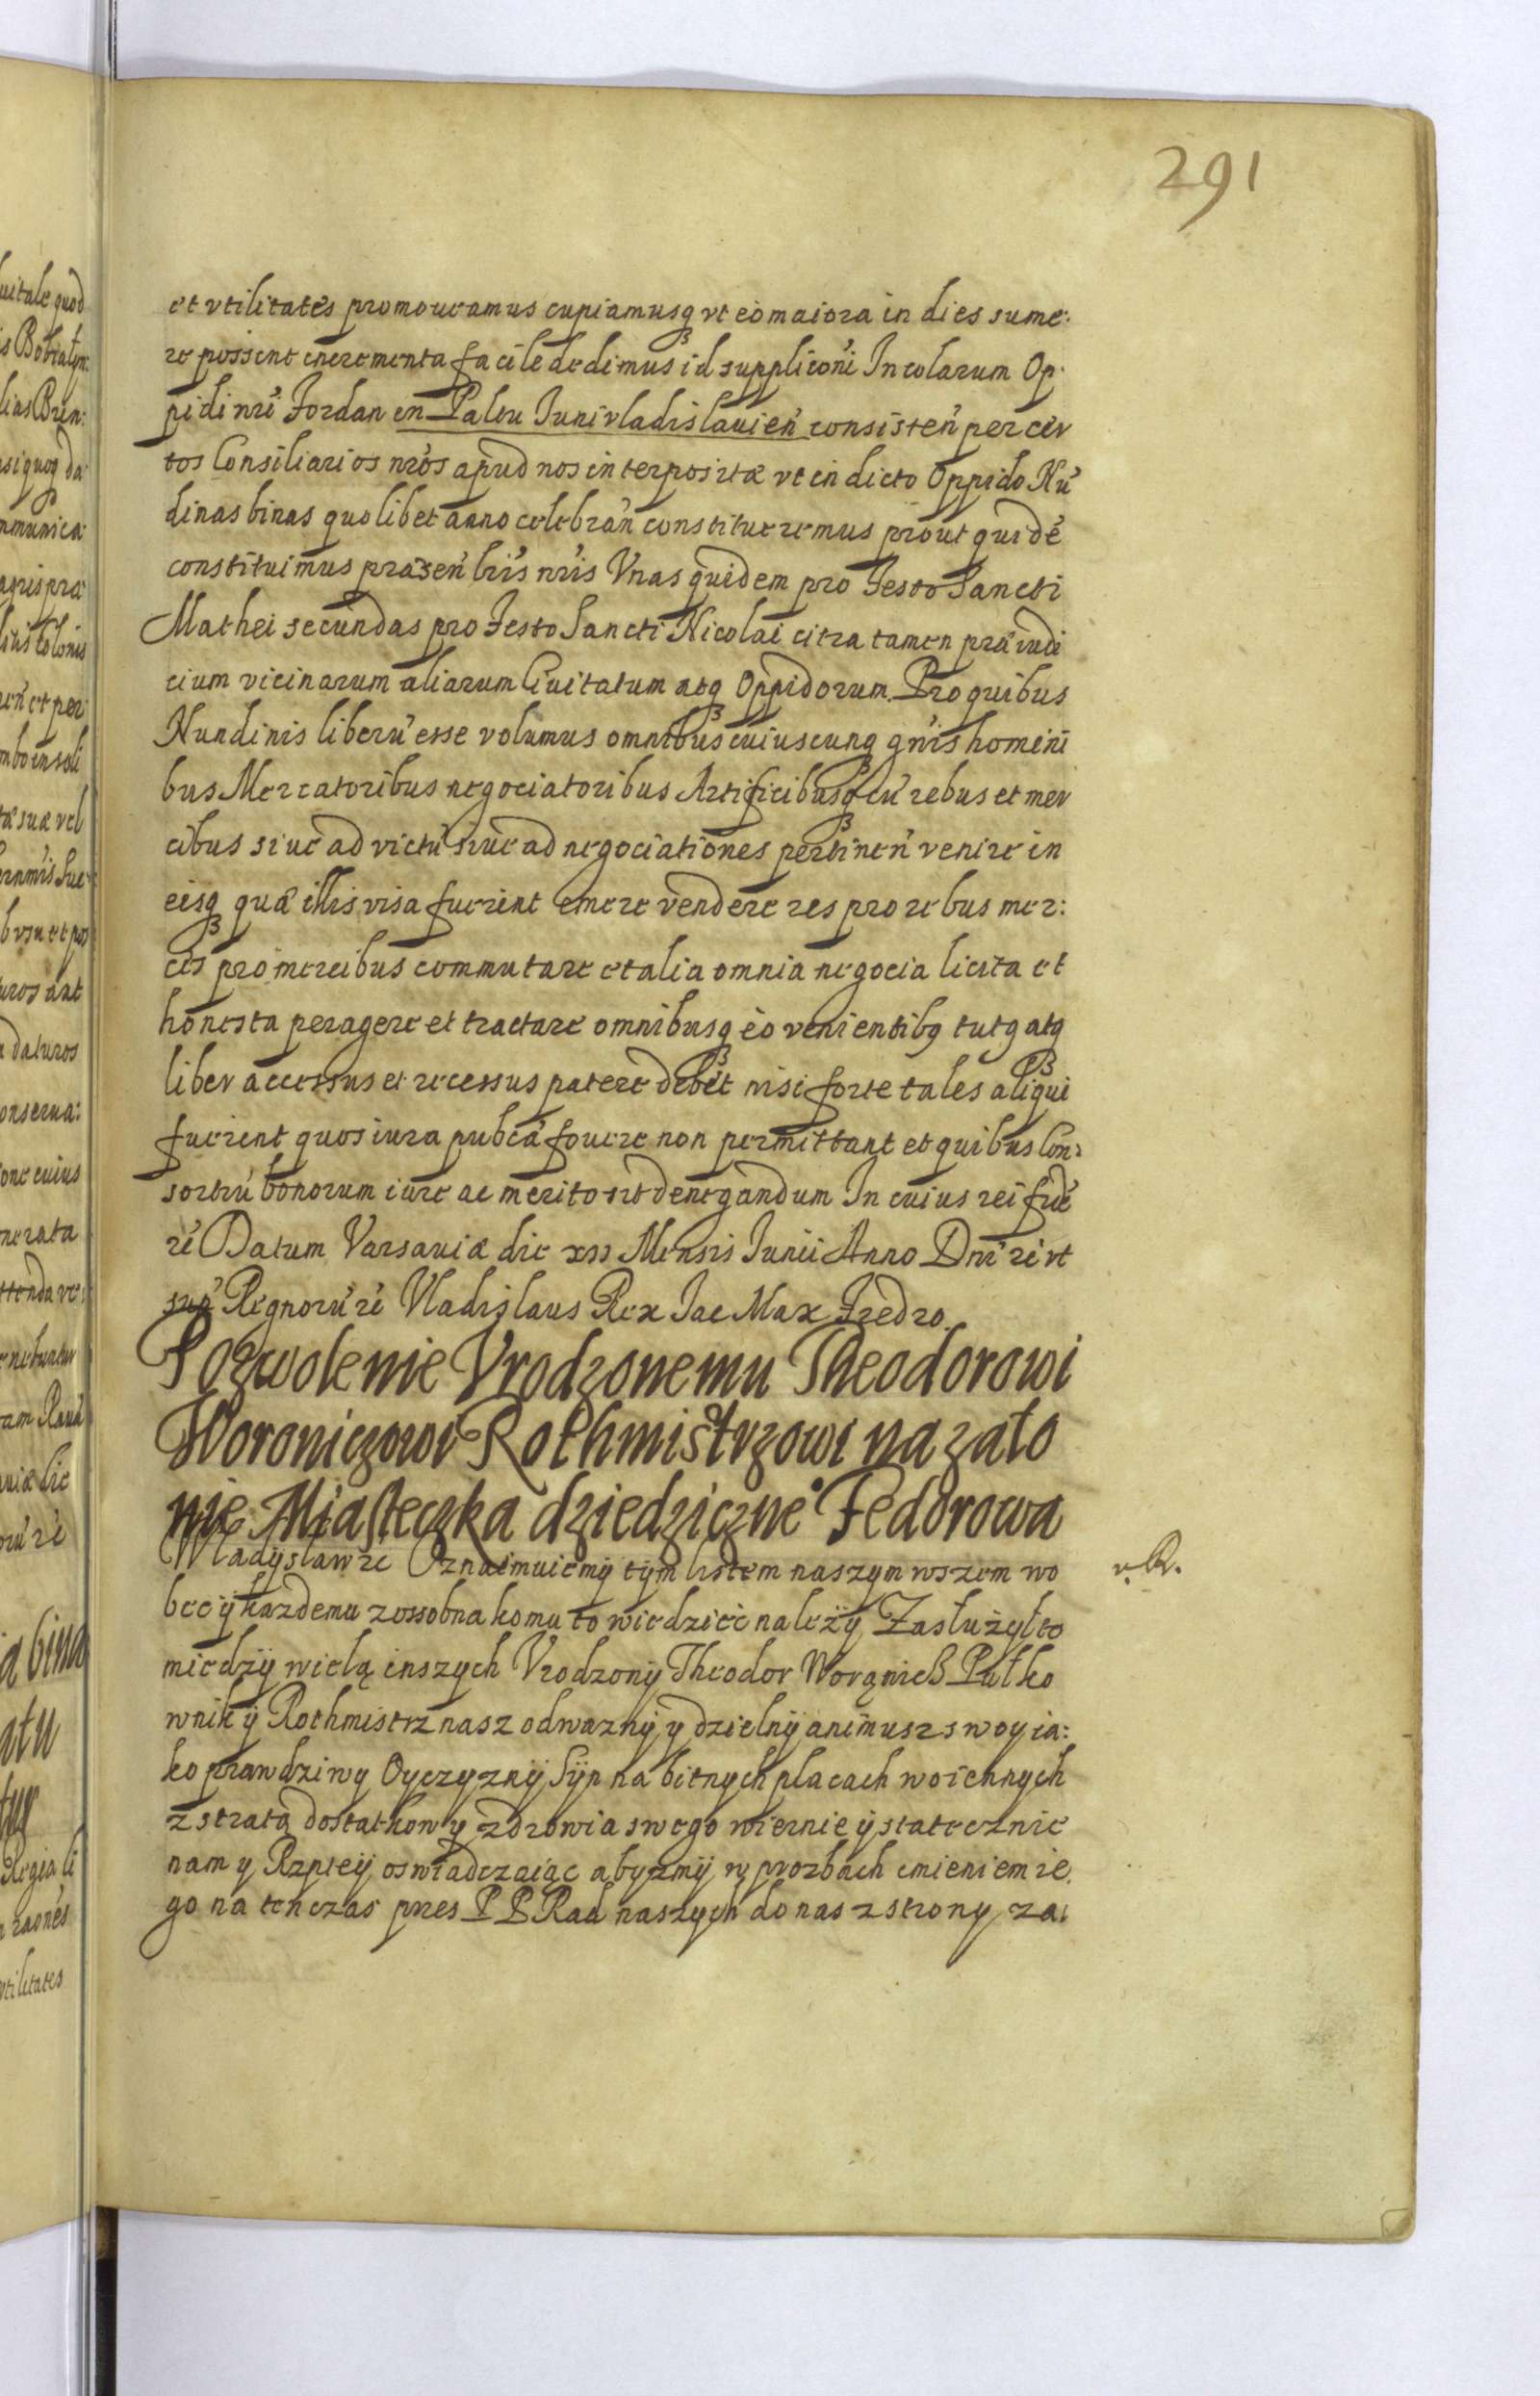 291
et vtilitates promoueamus cupiamusq vt eo maiora in dies sume:
re possint incrementa facile dedimus id suppliconi Incolarum Op:
pidi nri Fordan in Paltu Iunivladislauien consisten per cer
tos Consiliarios nros apud nos interpositæ vt in dicto Oppido Nu
dinas binas quolibet anno celebran constitueremus prout quide
constituimus præsen lris nris Vnas quidem pro Festo Sancti
Mathei secundas pro Festo Sancti Nicolai citra tamen præiudi
cium vicinarum aliarum Ciuitatum atq Oppidorum. Pro quibus
Nundinis liberu esse volumus omnibus cuiuscunq gnis homini
bus Mercatoribus negociatoribus Artificibusq cu rebus et mer
cibus siue ad victu siue ad negociationes pertinen venire in
eisq quæ illis visa fuerint emere vendere res pro rebus mer:
ces pro mercibus commutare et alia omnia negocia licita et
honesta peragere et tractare omnibusq eo venientibq tutq atq
liber accessus et recessus patere debet nisi forte tales aliqui
fuerint quos iura pubca fouere non permittant et quibus Con:
sortiu bonorum iure ac merito sit denegandum In cuius rei fide
re Datum Varsauiæ die Mensis Iunii Anno Dni re vt
sup Regnoru re Vladislaus Rex Iac Max Fredro.
Pozwolenie Vrodzonemu Theodorowi
Woroniczowi Rothmistrzowi na zało
nie Miasteczka dziedziczne° Fedorowa
Władysław re Oznaimuiemy tym listem naszym wszem wo
v. R.
bec y każdemu zossobna komu to wiedzieć należy Zasłużył to
miedzy wielą inszych Vrodzony Theodor Worąnicz Pułko
wnik y Rothmistrz nasz odwazny y dzielny animusz swoy ia:
ko prawdziwy Oyczyzny Syn na bitnych placach woiennych
z stratą dostatkow y zdrowia swego wiernie y statecznie
nam y Rzptey oswiadczaiąc abyzmy w prozbach imieniem ie
go na ten czas przes P P Rad naszych do nas z strony za: